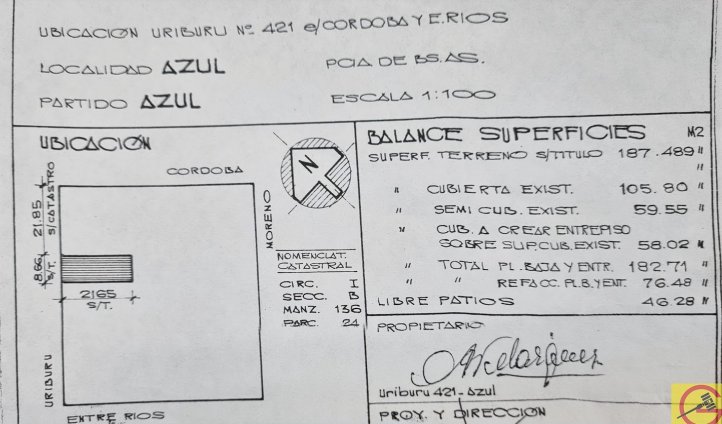 UBICACION URIBURU Nº 421 e/CORDOBA Y E.RIOS
LOCALIDAD AZUL PCIA DE BS.AS.
PARTIDO AZUL ESCALA 1:100
UBICACIÓN
CORDOBA
MORENO
21.85
S/CATASTRO
8.66
S/T.
2165
S/T.
URIBURU
ENTRE RIOS
N
NOMENCLAT.
CATASTRAL
CIRC. I
SECC. B
MANZ. 136
PARC. 24
BALANCE SUPERFICIES M2
SUPERF. TERRENO S/TITULO 187.489 "
"
" CUBIERTA EXIST. 105.80 "
" SEMI CUB. EXIST. 59.55 "
" CUB. A CREAR ENTREPISO
SOBRE SUP.CUB.EXIST. 58.02 "
" TOTAL PL.BAJA Y ENTR. 182.71 "
" " REFACC. PL.B.Y ENT. 76.48 "
LIBRE PATIOS 46.28 "
PROPIETARIO
Uriburu 421-Azul
PROY. Y DIRECCION